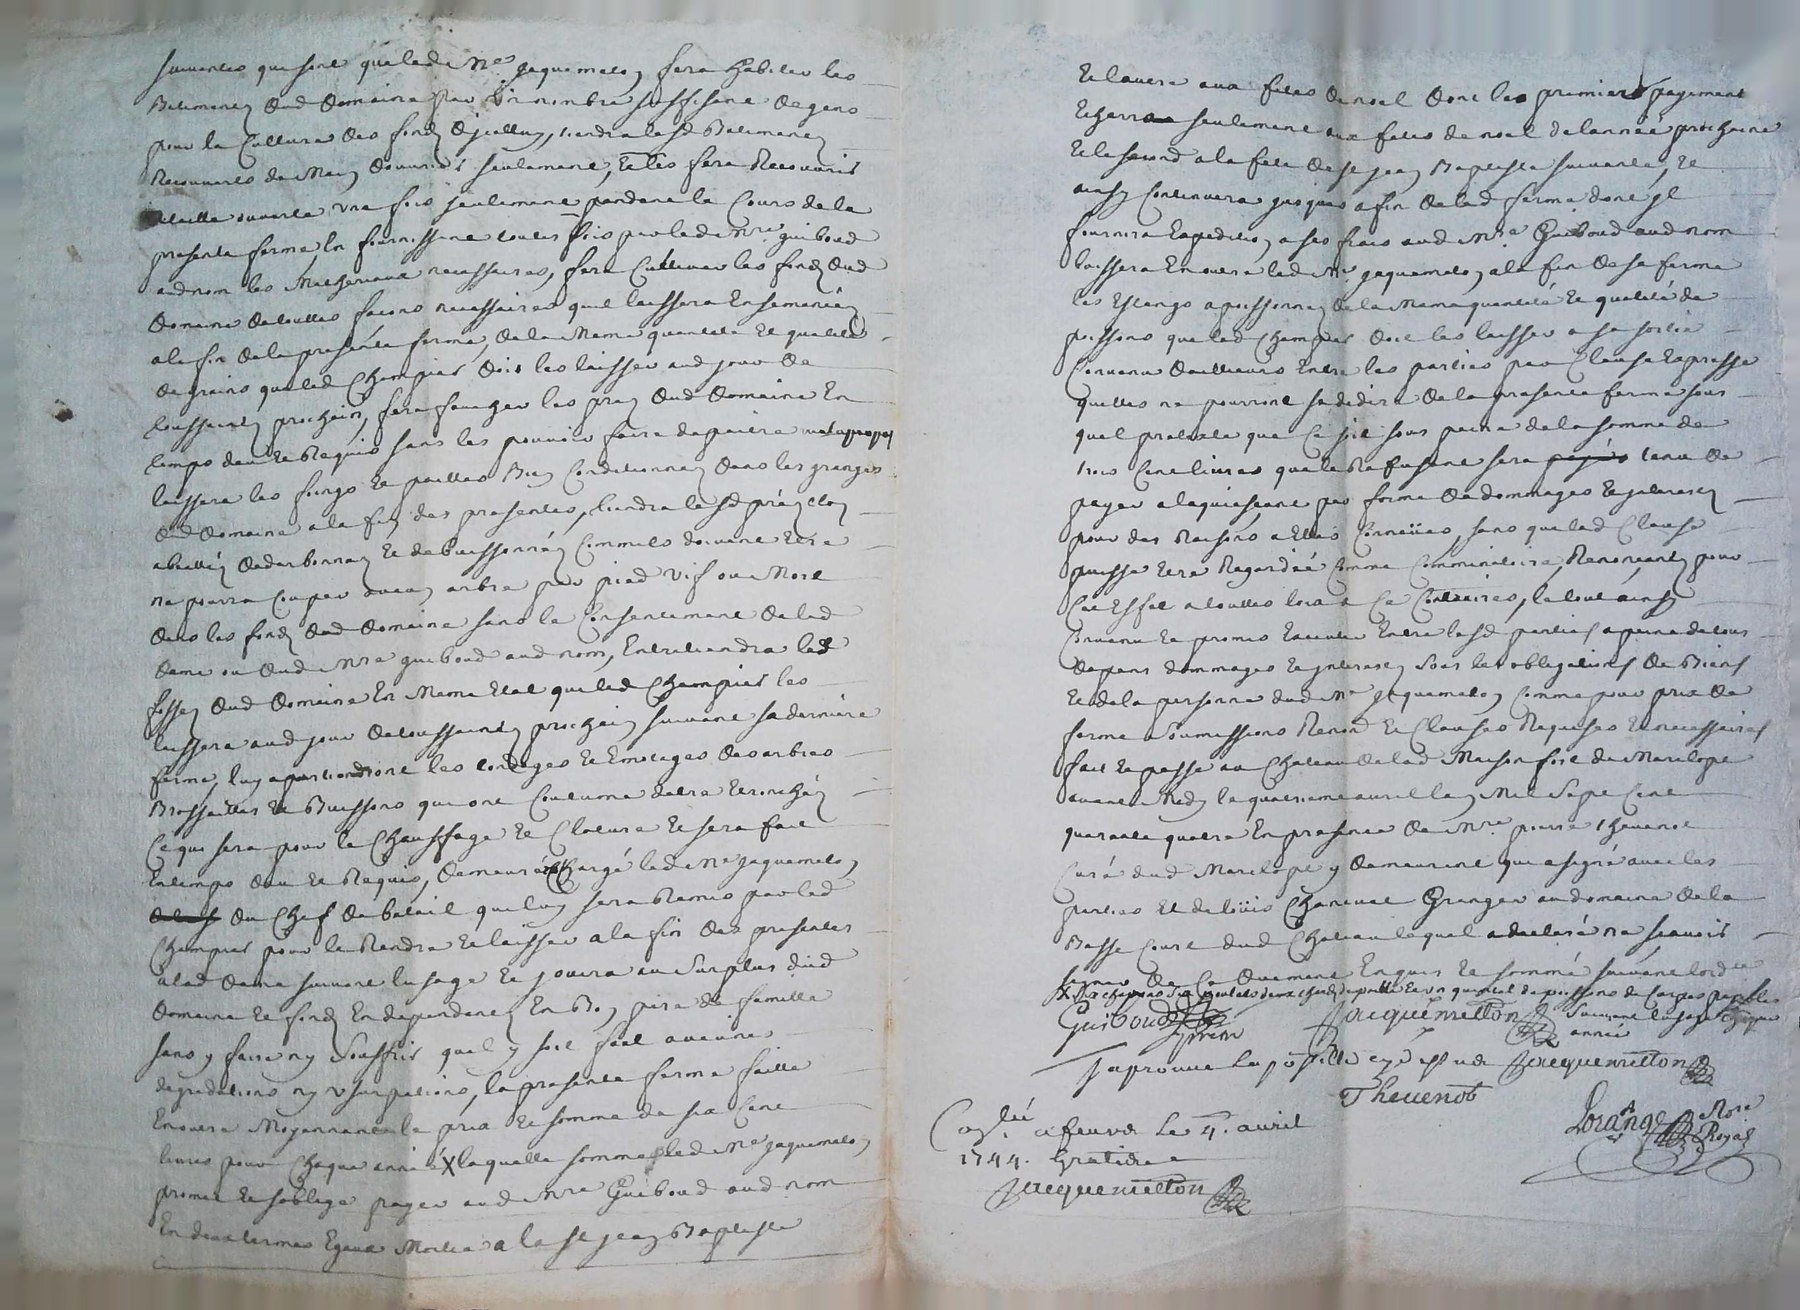 suivantes qui sont que led. Mre Jaquemeton fera habiter les
Batiments dud Domaine par un nombre suffisant de gens
pour la Culture des fonds d'jcelluy, tiendra lesd Batiments
Recouverts de Main d'ouvriers seulement, et les fera Recouvrir
a taille ouverte une fois seulement pendant le Cours de la
presente ferme, en fournissant toutes fois par led. Mre guiboud
aud nom les Matheriaux necessaires, fera Cultiver les fonds dud
Domaine de touttes facons necessaires quil laissera Ensemencés
a la fin de la presente ferme, de la Meme quantité et qualité
de grains que led Champier doit les laisser aud jour de
toussaints prochain, fera faucher les prez dud Domaine En
temps deu et Requis sans les pouvoir faire depaitre mal apropos
laissera les foings et pailles Bien Conditionnez dans les granges
dud Domaine a la fin des presentes, tiendra lesd préz clos
abattis dedarbonnez et debuissonnéz Comme ils doivent Etre
ne pourra Couper aucun arbre par pied vif ou Mort
dans les fonds dud Domaine sans le Consentement de lad
dame ou dud Mre guiboud aud nom, Entretiendra les
fossez dud Domaine En Meme Etat que led Champier les
laissera aud jour de toussaints prochain suivant sa derniere
ferme, luy apartiendront les tondages et Emotages des arbres
Brossailles et Buissons qui ont Coutume detre Etronchés
Ce qui sera pour le Chauffage et Cloture et sera fait
En temps deu et Requis, demeure Chargé led Mre Jaquemeton
du Chef de betail quil luy sera Remis par led
Champier pour le Rendre et laisser a la fin des presentes
a lad dame suivant lusage et jouira au surplus dud
Domaine et fonds En dependants En Bon pere de famille
sans y faire ny souffrir quil y soit fait aucunes
degradations ny usurpations, la presente ferme faitte
En outre Moyennant le prix et somme de six Cent
livres pour Chaque année X laquelle somme led Mre Jaquemeton
promet et soblige payer aud Mre Guiboud aud nom
En deux termes Egaux Moitié a la St jean Baptiste
Et lautre aux fetes de noel dont les premiers payement
Echerra seulement aux fetes de noel de lannée prochaine
Et le second a la fete de St jean Baptiste suivante, et
ainsy Continuera jusques a fin de lad ferme dont jl
fournira Expedition a ses frais aud Mre Guiboud aud nom
laissera En outre led Mre Jaquemeton a la fin de sa ferme
les Estangs apoissonnez de la Meme quantité et qualité de
poissons que led Champier doit les laisser a sa sortie
Convenu d'ailleurs Entre les parties par Clause Expresse
quelles ne pourront se dedire de la presente ferme sous
quel pretexte que Ce soit sous peine de la somme de
trois Cent livres que le Refusant sera tenu de
payer a laquiesçant par forme de dommages et jnterests
pour des Raisons a Elles Connües, sans que lad Clause
puisse etre Regardéé Comme Comminatoire, Renonceants pour
Cet Effet a touttes loix a Ce Contraires, le tout ainsy
Convenu et promis Executer Entre lesd parties a peine de tous
depens dommages et jnterests sous les obligations de Biens
Et de la personne dud Mre Jaquemeton Comme pour prix de
ferme soumissions Renon. et Clauses Requises et necessaires
fait et passé au Chateau de lad Maison fort de Marilope
avant Midy le quatrieme avril lan Mil Sept Cent
quarante quatre En presence de Mre pierre thevenot
Curé dud Marilope y demeurant qui a signé avec les
parties et de Loüis Chanevat Granger au domaine de la
Basse Court dud Chateau lequel a declaré ne scavoir
signer de Ce düement Enquis et sommé suivant lord.ce
X six chapons six poulets deux chards de paille et un quintal de poissons de Carpes payables
suivant lusage chaque
année
Guiboud Jacquemetton
Japrouve la postille cy dessus Jacquemetton
Thevenot
Lorange Nore
Royal
Conlé a feurs le 4. avril
1744. Gratis
Jacquemetton